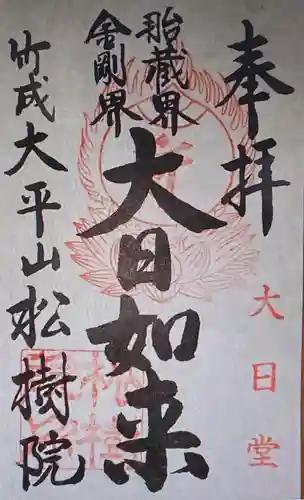 奉拝
大日堂
胎蔵界
金剛界
大日如来
竹成大平山松樹院